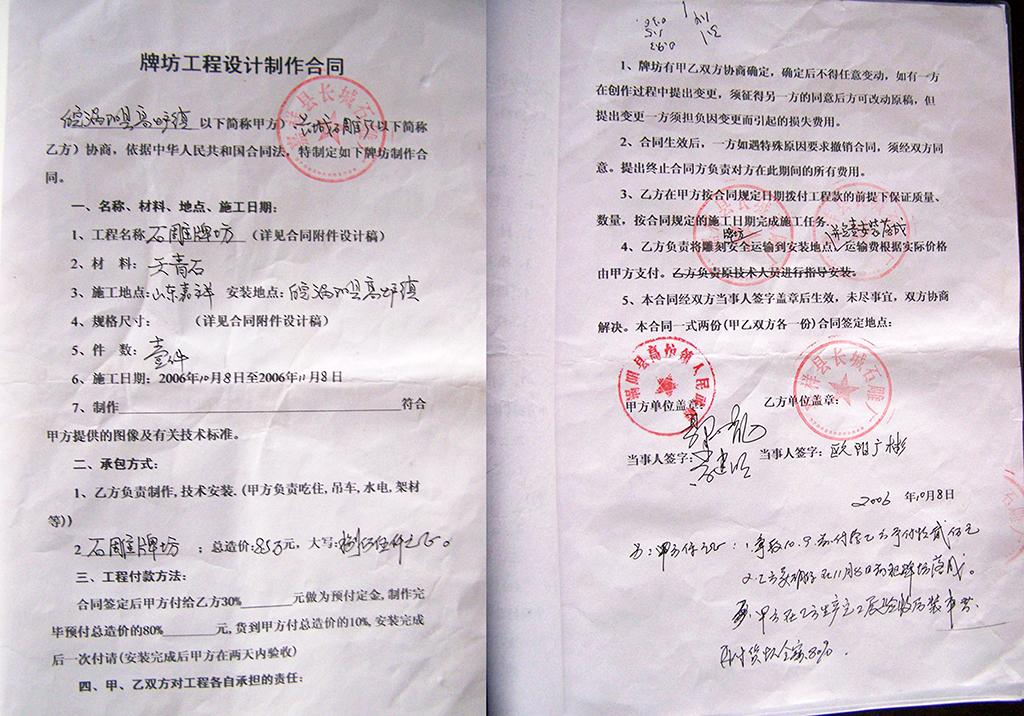 牌坊工程设计制作合同
皖涡阳县高炉镇 以下简称甲方) 长城石雕厂(以下简称
乙方) 协商，依据中华人民共和国合同法，特制定如下牌坊制作合
同。
一、名称、材料、地点、施工日期:
1、工程名称 石雕牌坊 (详见合同附件设计稿)
2、材 料: 天青石
3、施工地点:山东嘉祥 安装地点: 皖涡阳县高炉镇
4、规格尺寸: (详见合同附件设计稿)
5、件 数: 壹件
6、施工日期: 2006年10月8日至2006年11月8日
7、制作 符合
甲方提供的图像及有关技术标准。
二、承包方式:
1、乙方负责制作,技术安装.(甲方负责吃住,吊车,水电,架材
等))
2 石雕牌坊 ; 总造价: 元, 大写:
三、工程付款方法:
合同签定后甲方付给乙方30% 元做为预付定金,制作完
毕预付总造价的80% 元,货到甲方付总造价的10%,安装完成
后一次付请(安装完成后甲方在两天内验收)
四、甲、乙双方对工程各自承担的责任:
1、牌坊有甲乙双方协商确定，确定后不得任意变动，如有一方
在创作过程中提出变更，须征得另一方的同意后方可改动原稿，但
提出变更一方须担负因变更而引起的损失费用。
2、合同生效后，一方如遇特殊原因要求撤销合同，须经双方同
意。提出终止合同方负责对方在此期间的所有费用。
3、乙方在甲方按合同规定日期拨付工程款的前提下保证质量、
数量，按合同规定的施工日期完成施工任务。
牌坊
4、乙方负责将雕刻安全运输到安装地点，运输费根据实际价格
由甲方支付。乙方负责原技术人员进行指导安装。
5、本合同经双方当事人签字盖章后生效，未尽事宜，双方协商
解决。本合同一式两份(甲乙双方各一份)合同签定地点:
涡阳县高炉镇人民政府
嘉祥县长城石雕厂
甲方单位盖章: 乙方单位盖章:
当事人签字: 当事人签字: 欧阳广彬
2006 年10月8日